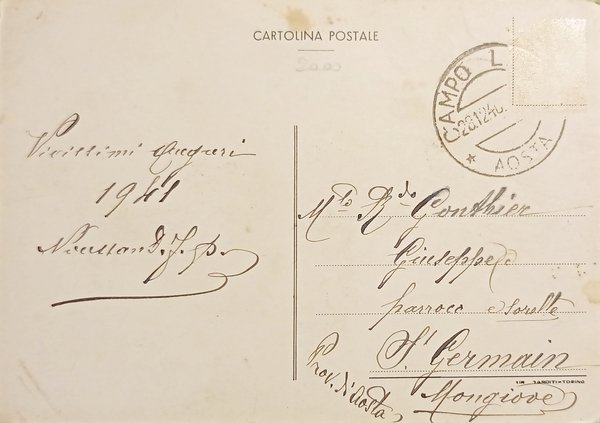 CARTOLINA POSTALE
CAMPO L
28.12.40
AOSTA
Vivissimi auguri
1941
M.to R.do Gonthier
Giuseppe
parroco e sorelle
St Germain
Prov. di Aosta
Mongiove
TORINO